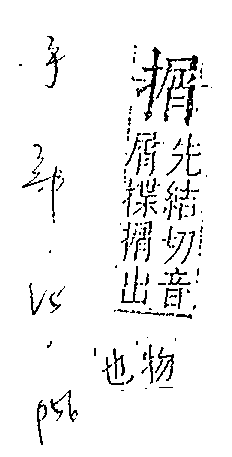 揟
先結切音
屑揲揟出
物
也
手
部
.
25
.
P56